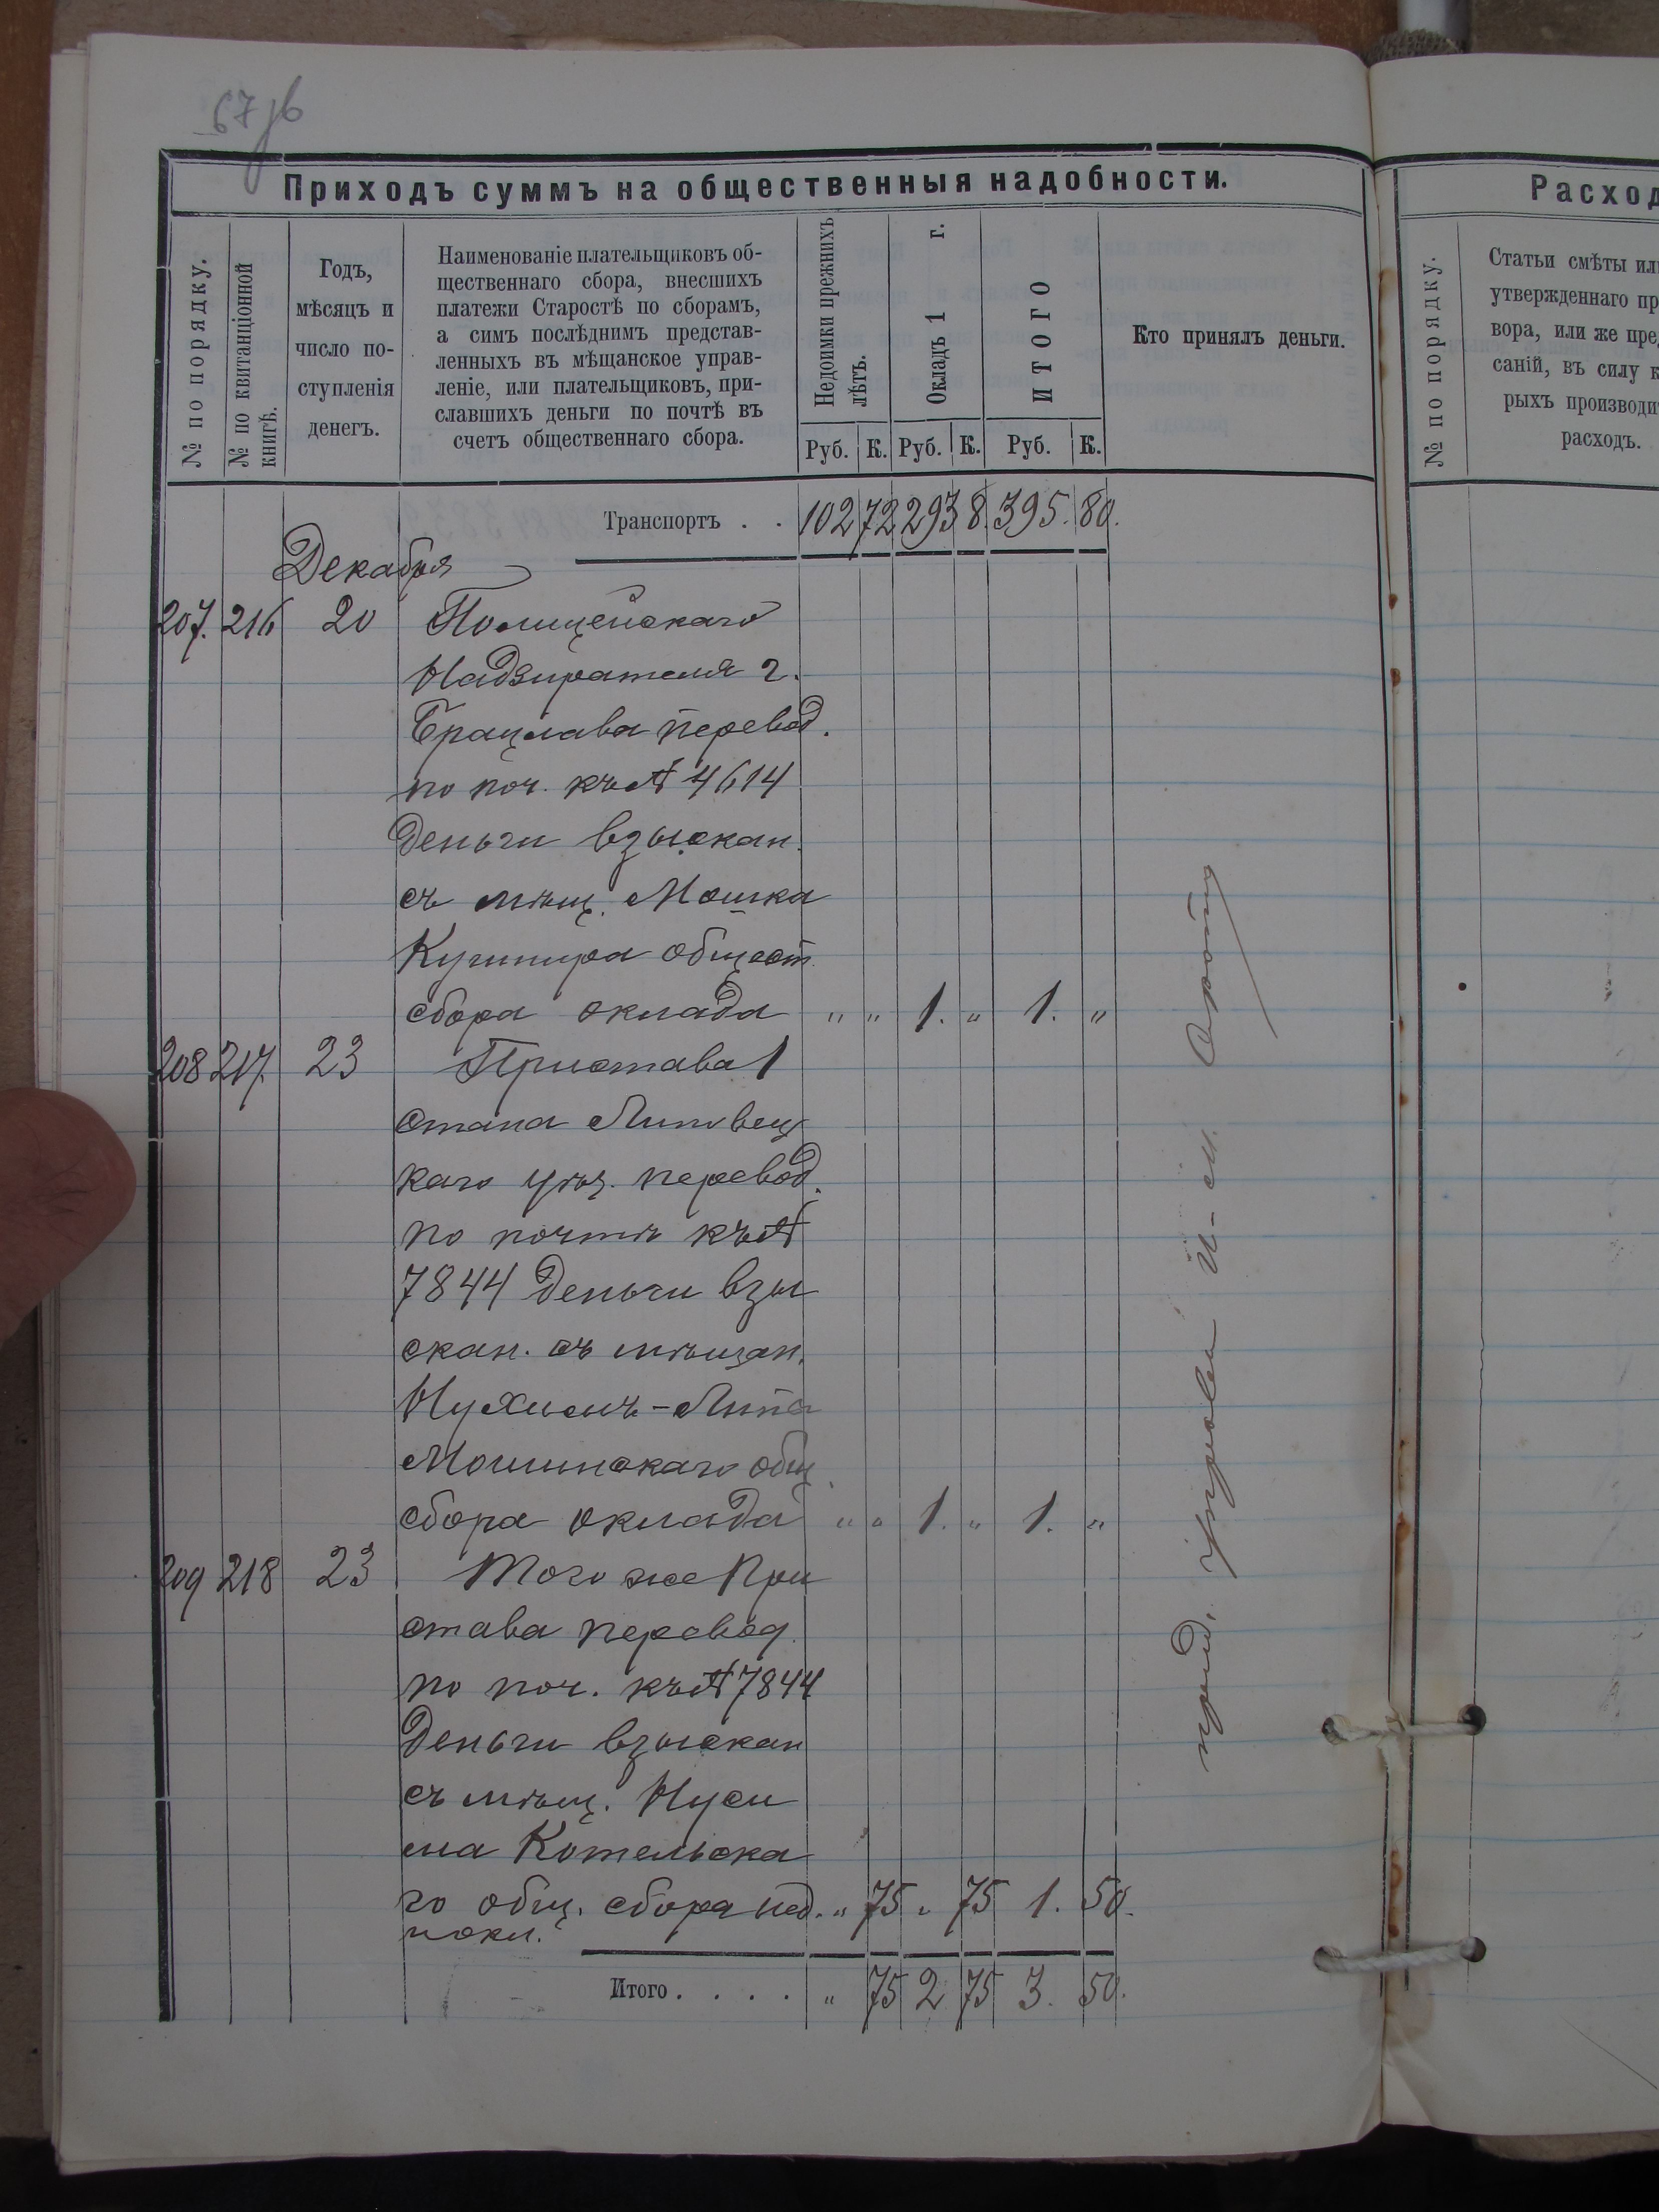 67 зв
Приходъ суммъ на общественныя надобности.
№ по порядку.
№ по квитанціонной
книгѣ.
Годъ,
мѣсяцъ и
число по-
ступленія
денегъ.
Наименованіе плательщиковъ об-
щественнаго сбора, внесшихъ
платежи Старостѣ по сборамъ,
а симъ послѣднимъ представ-
ленныхъ въ мѣщанское управ-
леніе, или плательщиковъ, при-
славшихъ деньги по почтѣ въ
счетъ общественнаго сбора.
Недоимки прежнихъ
лѣтъ.
Окладъ 1 г.
ИТОГО
Кто принялъ деньги.
Руб. К. Руб. К. Руб. К.
Транспортъ . . 102 72 293 8. 395. 80.
Декабря
207. 216 20 Полицейскаго
Надзирателя г.
Брацлава перевод.
по поч. къ № 4614
деньги взыскан.
съ мѣщ. Мошка
Кушнира общест.
сбора оклада " " 1. " 1. "
208 217. 23 Пристава 1
стана Липовец
каго уѣз. перевод.
по почтѣ къ №
7844 деньги взы
скан. съ мѣщан.
Нухимъ-Липы
Мошинскаго общ.
сбора оклада " " 1. " 1. "
209 218 23 Того же При
става перевод.
по поч. къ № 7844
деньги взыскан
съ мѣщ. Нуси
ма Котельска
го общ. сбора нед. " 75 " 75 1. 50.
и окл.
Итого . . . . " 75 2 75 3. 50.
Расход
№ по порядку.
Статьи смѣты или
утвержденнаго пр
вора, или же пред
саній, въ силу к
рыхъ производи
расходъ.